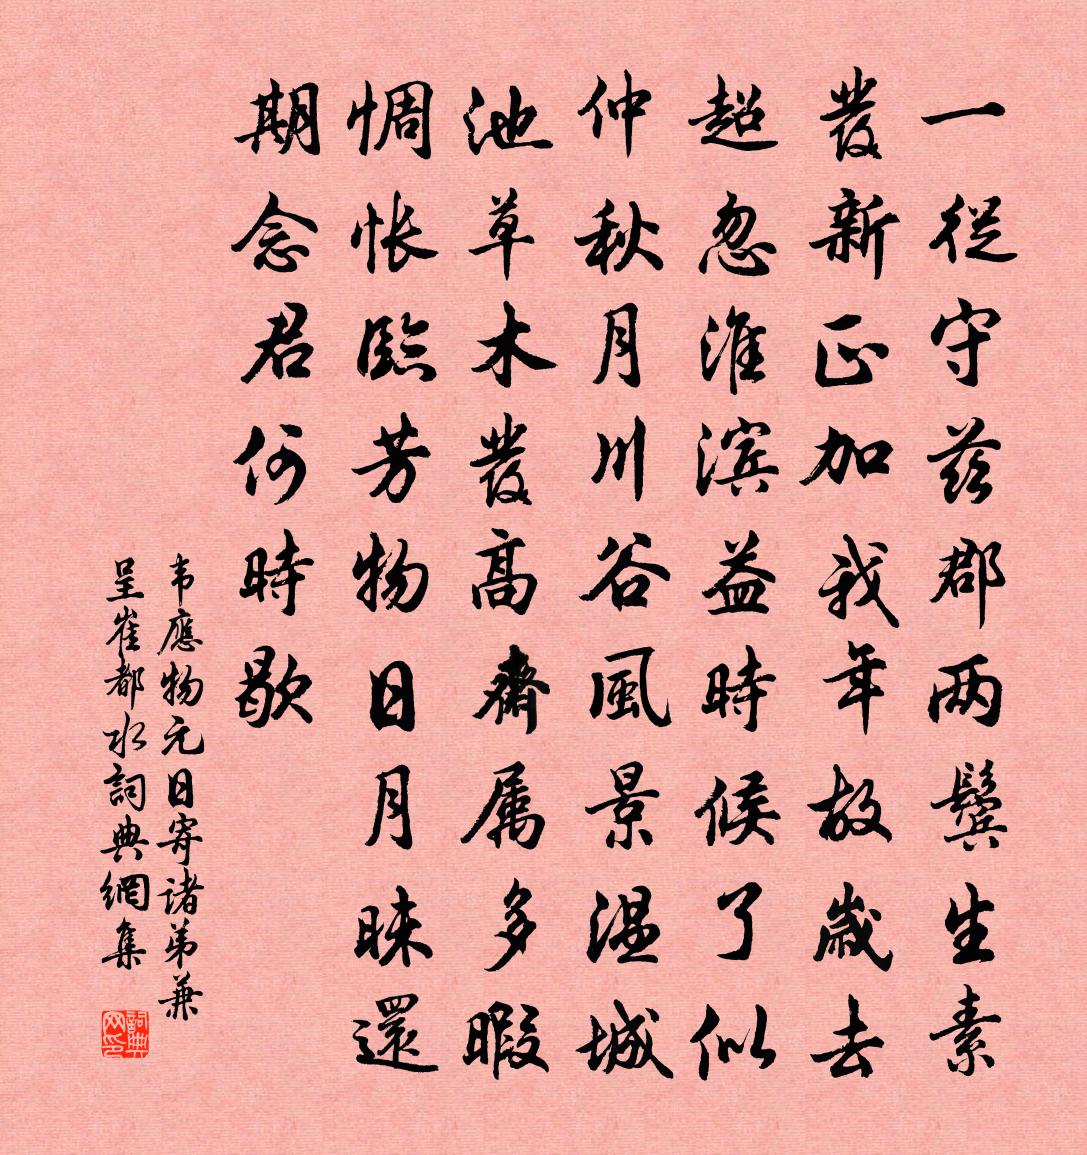 一從守茲郡两鬓生素
發新正加我年故歲去
超忽淮滨益時候了似
仲秋月川谷風景温城
池草木發高齋属多暇
惆怅臨芳物日月昧還
期念君何時歇
韦應物元日寄诸弟兼
呈崔都水詞典網集
詞典
网印